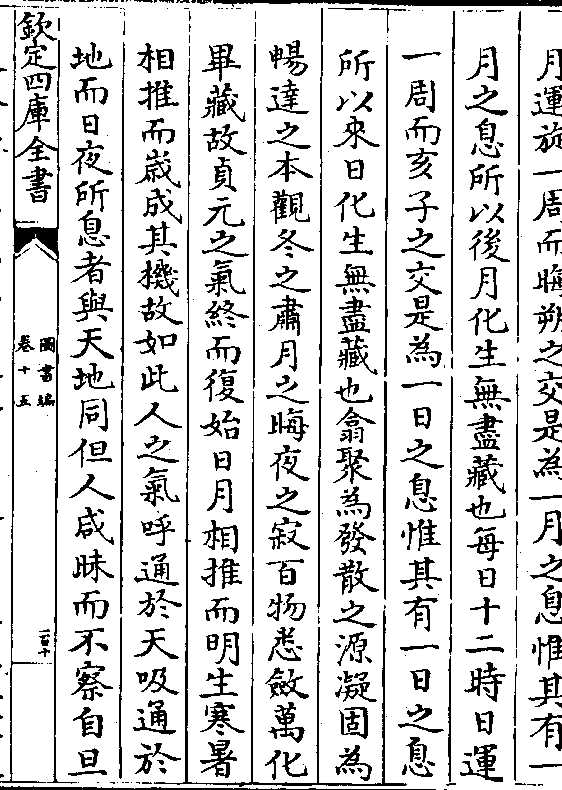 月運旋一周而晦朔之交是為一月之息惟其有一
月之息所以後月化生無盡藏也每日十二時日運
一周而亥子之交是為一日之息惟其有一日之息
所以來日化生無盡藏也翕聚為發散之源凝固為
暢達之本觀冬之肅月之晦夜之寂百物悉斂萬化
畢藏故貞元之氣終而復始日月相推而明生寒暑
相推而歲成其機故如此人之氣呼通於天吸通於
地而日夜所息者與天地同但人咸昧而不察自旦
欽定四庫全書
圖書編
卷十五